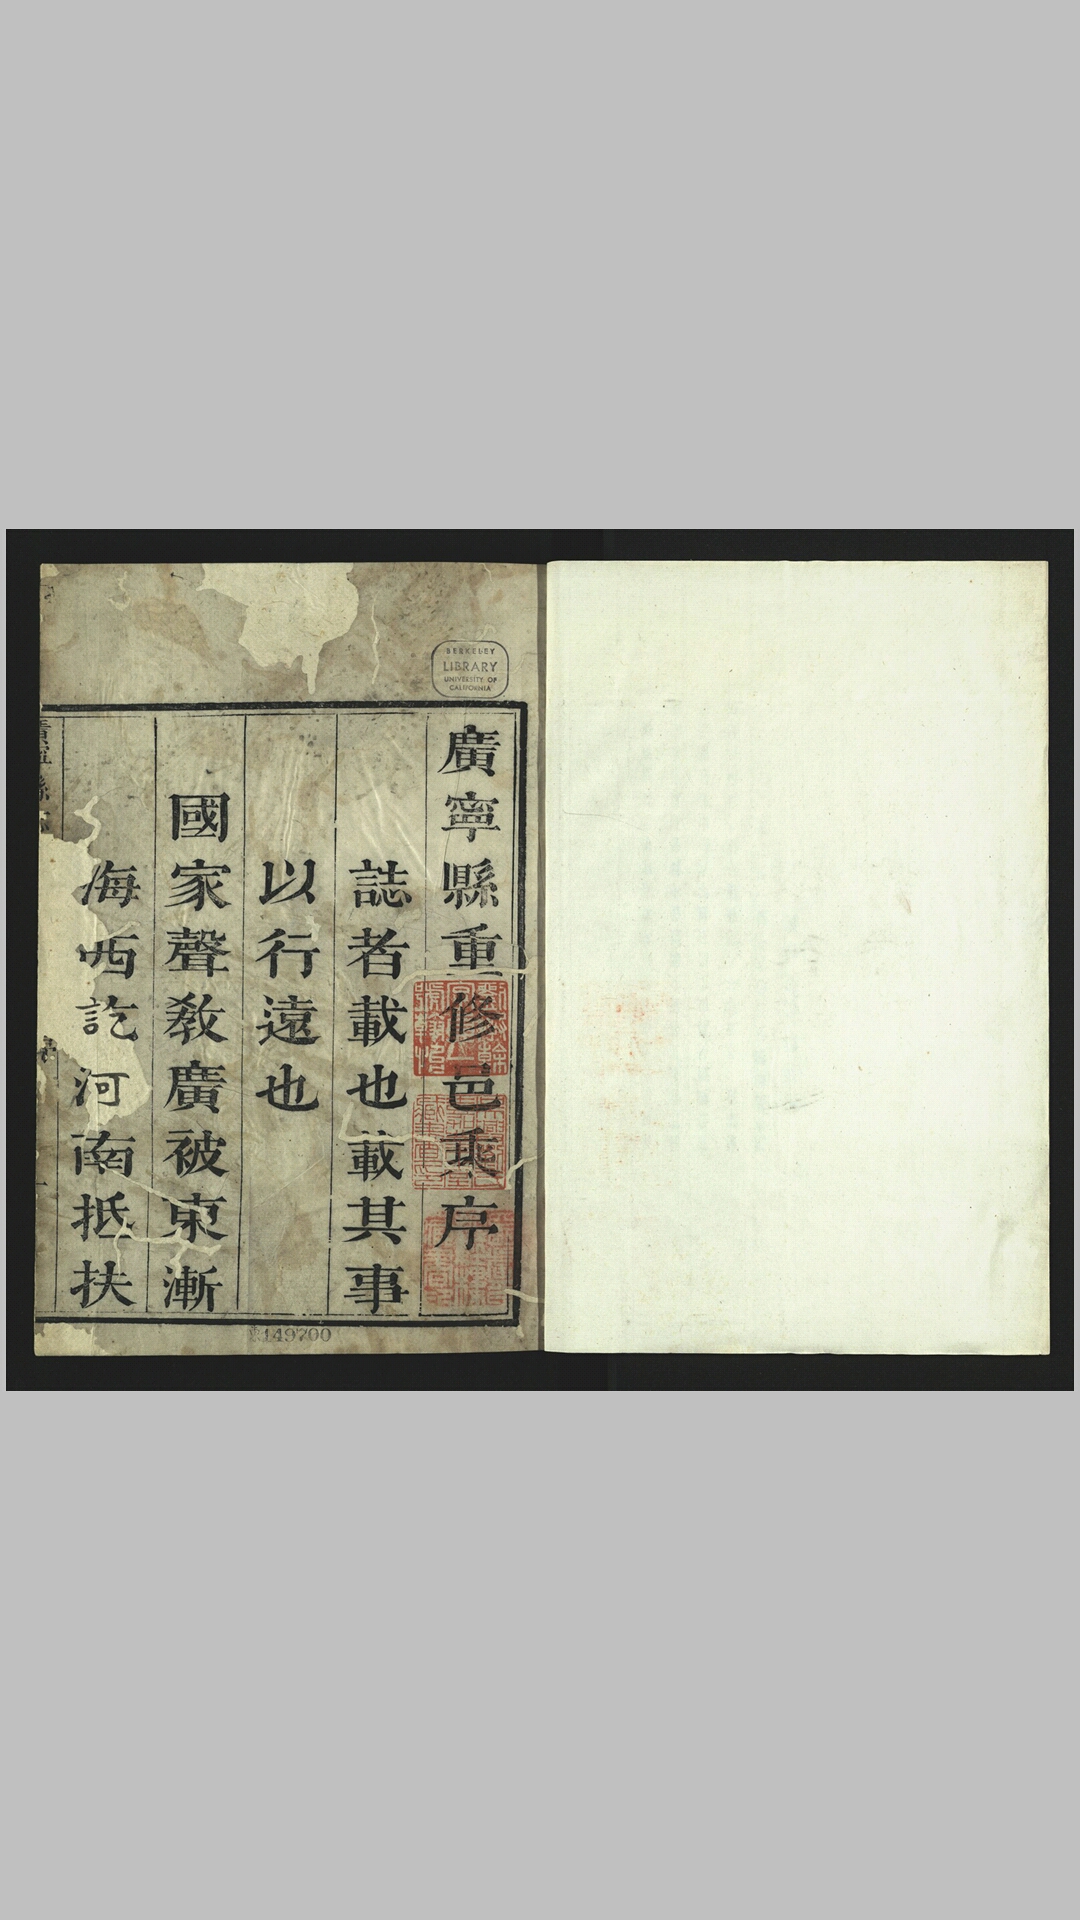 BERKELEY
LIBRARY
UNIVERSITY OF
CALIFORNIA
廣寧縣重修邑乘序
誌者載也載其事
以行遠也
國家聲教廣被東漸
海西訖河南抵扶
149700